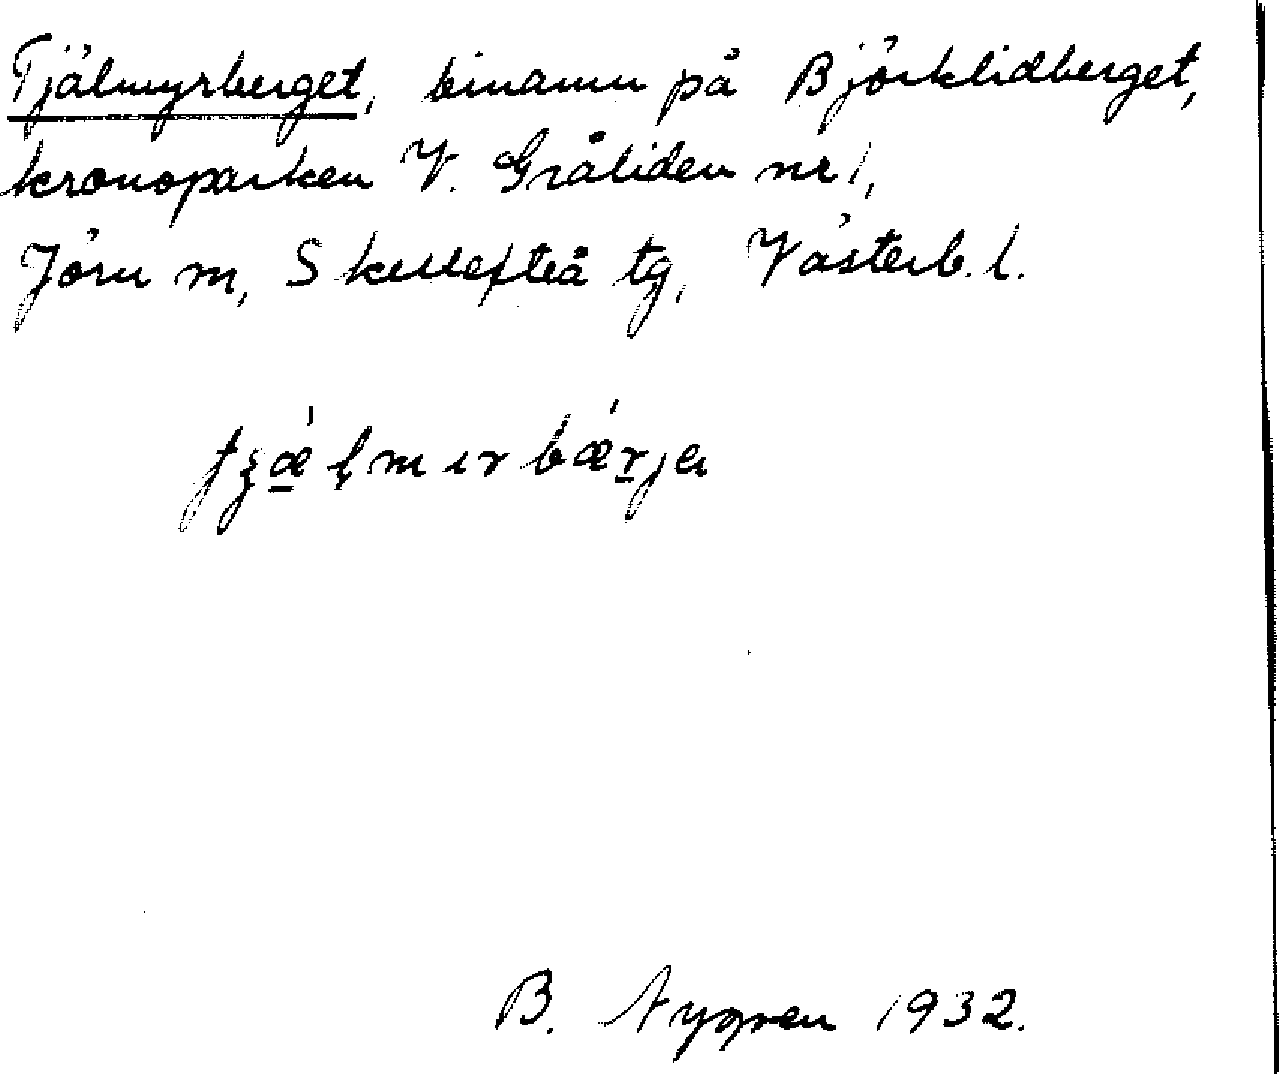 Tjälmyrberget, binamn på Björklidberget,
kronoparken V. Gråliden nr 1,
Jörn sn, Skellefteå tg, Västerb. l.
B. Nygren 1932.